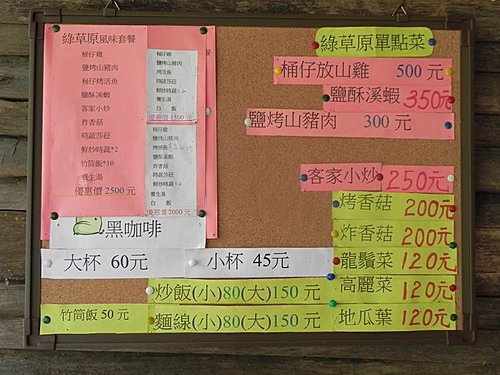 綠草原風味套餐
桶仔雞
鹽烤山豬肉
桶仔烤活魚
鹽酥溪蝦
客家小炒
炸香菇
時蔬莎菈
鮮炒時蔬*2
竹筒飯*10
養生湯
優惠價 2500 元
桶仔雞
鹽烤山豬肉
烤活魚
時蔬莎菈
鮮炒時蔬
養生湯
白 飯
優惠價 1500 元
桶仔雞
鹽烤山豬肉
鹽酥溪蝦
炸香菇
時蔬莎菈
鮮炒時蔬
養生湯
白 飯
優惠價 2000 元
黑咖啡
大杯 60元
小杯 45元
炒飯(小)80(大)150 元
竹筒飯 50 元
麵線(小)80(大)150 元
綠草原單點菜
桶仔放山雞 500 元
鹽酥溪蝦 350元
鹽烤山豬肉 300 元
客家小炒 250元
烤香菇 200元
炸香菇 200元
龍鬚菜 120元
高麗菜 120元
地瓜葉 120元